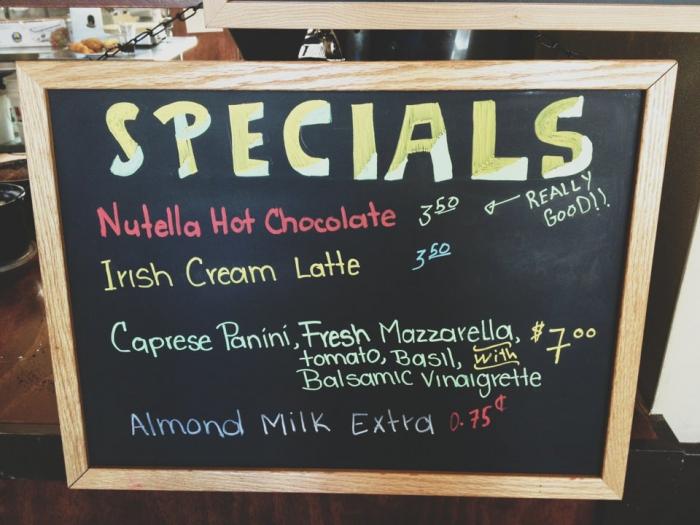 SPECIALS
Nutella Hot Chocolate 3.50 ← REALLY
GOOD!!
Irish Cream Latte 3.50
Caprese Panini, Fresh Mazzarella, $7.00
tomato, Basil, with
Balsamic Vinaigrette
Almond Milk Extra 0.75¢